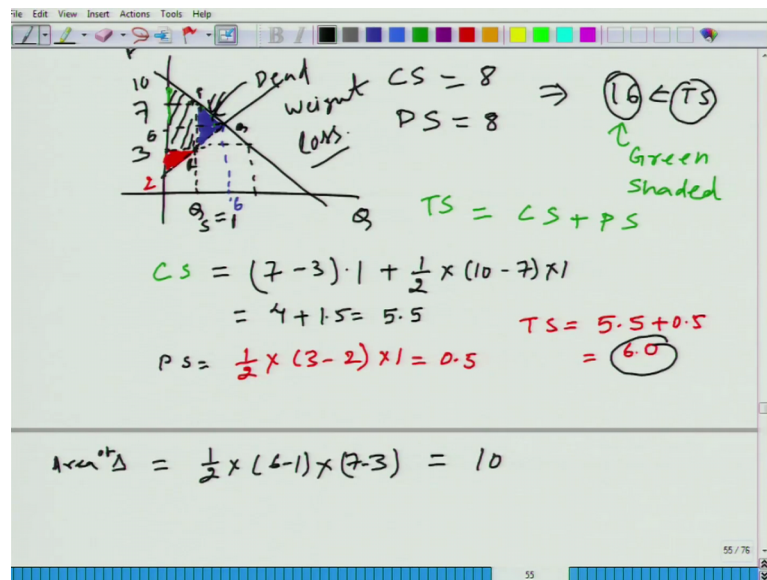 File Edit View Insert Actions Tools Help
P
10
7
6
3
2
Dead
Weight
Loss.
Q
S = 1
6
Q
CS = 8
PS = 8
⇒ 16 ← TS
Green
Shaded
TS = CS + PS
CS = (7-3)·1 + 1/2 × (10-7)×1
= 4 + 1.5 = 5.5
PS = 1/2 × (3-2) × 1 = 0.5
TS = 5.5 + 0.5
= 6.0
Area of Δ = 1/2 × (6-1) × (7-3) = 10
55 / 76
55